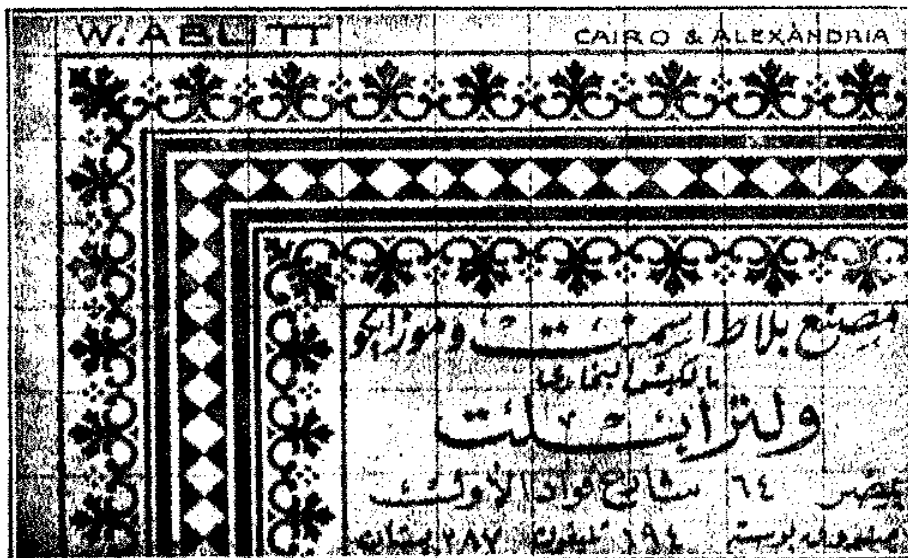 W. ABLITT
CAIRO & ALEXANDRIA
مصنع بلاط اسمنت وموزايكو
ولتر ابلت
بمصر ٦٤ شارع فؤاد الأول
١٩٤ تليفون ٢٨٧ بستان